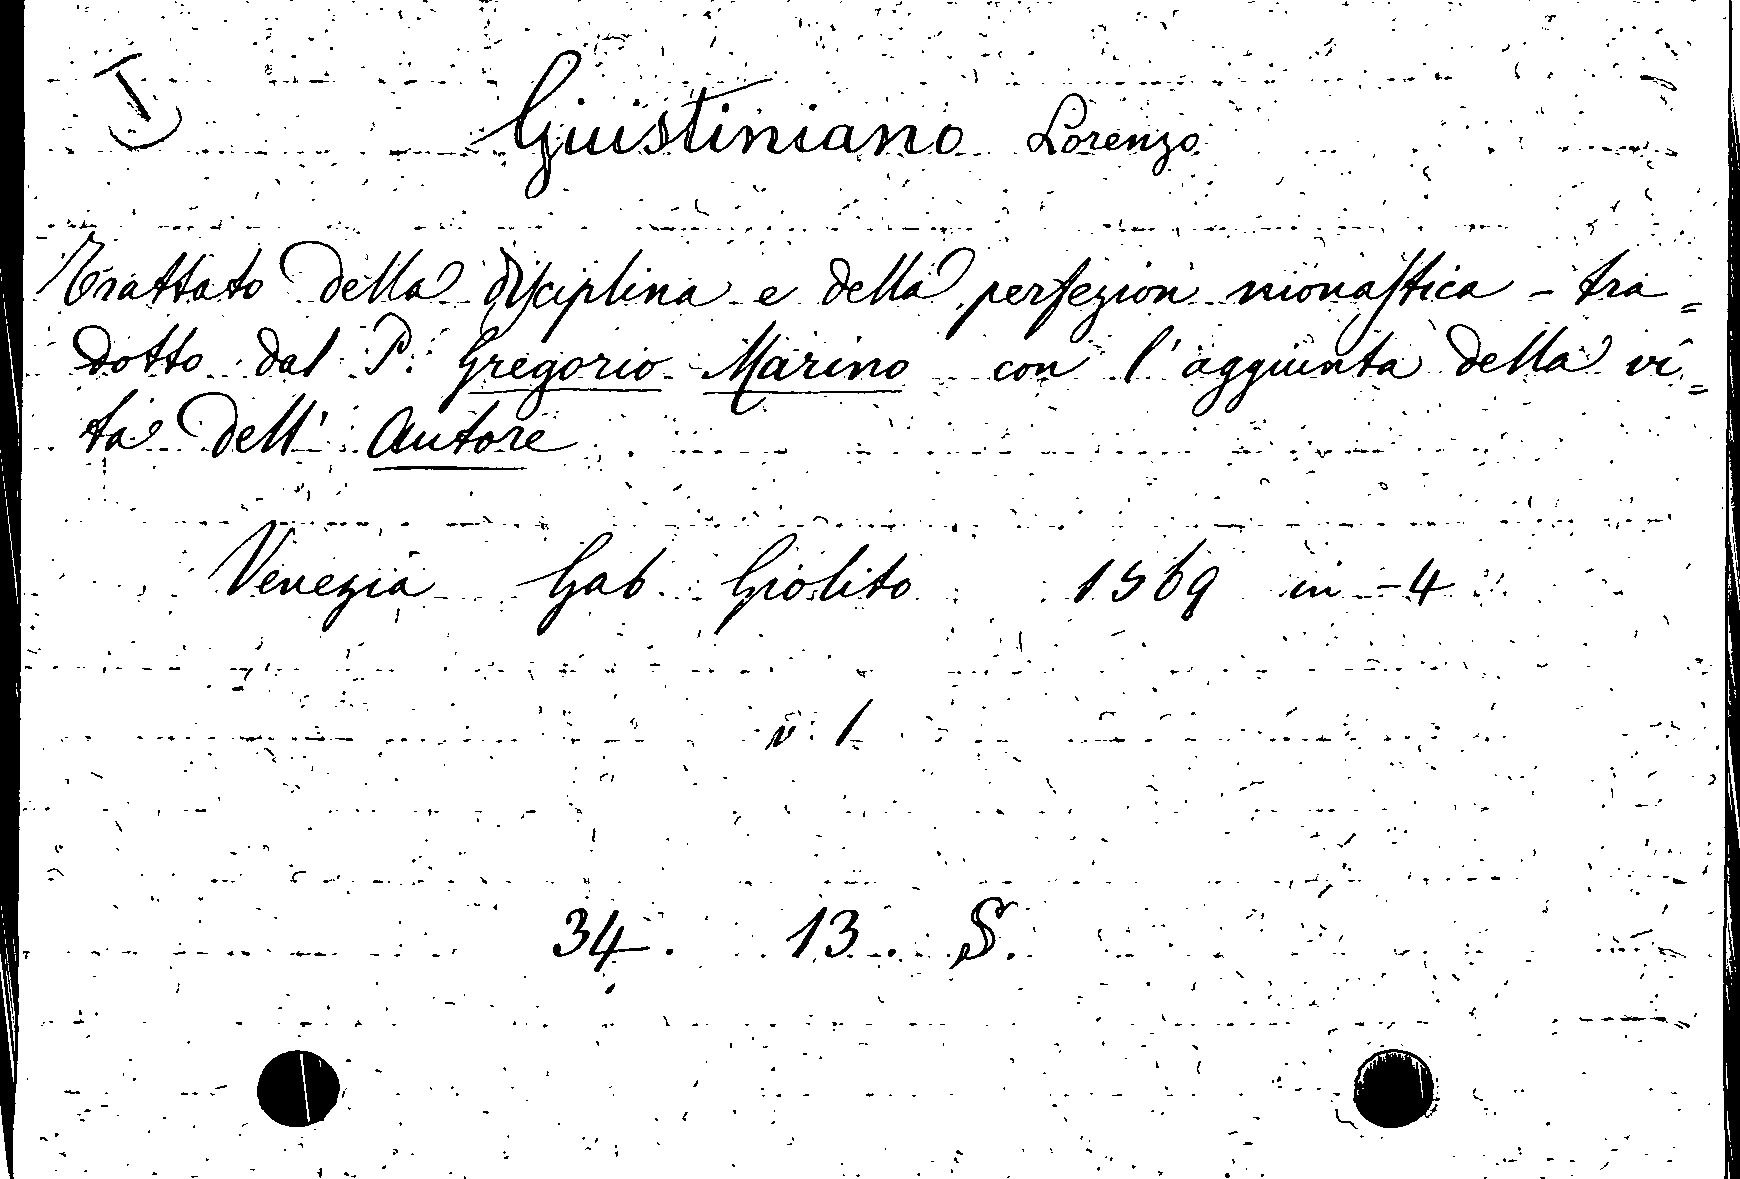 I
Giustiniano Lorenzo
Trattato della disciplina e della perfezion monastica - tra=
dotto dal P. Gregorio Marino con l'aggiunta della vi=
ta dell' Autore
Venezia Gab Giolito 1569 in-4
v. 1
34. 13. S.